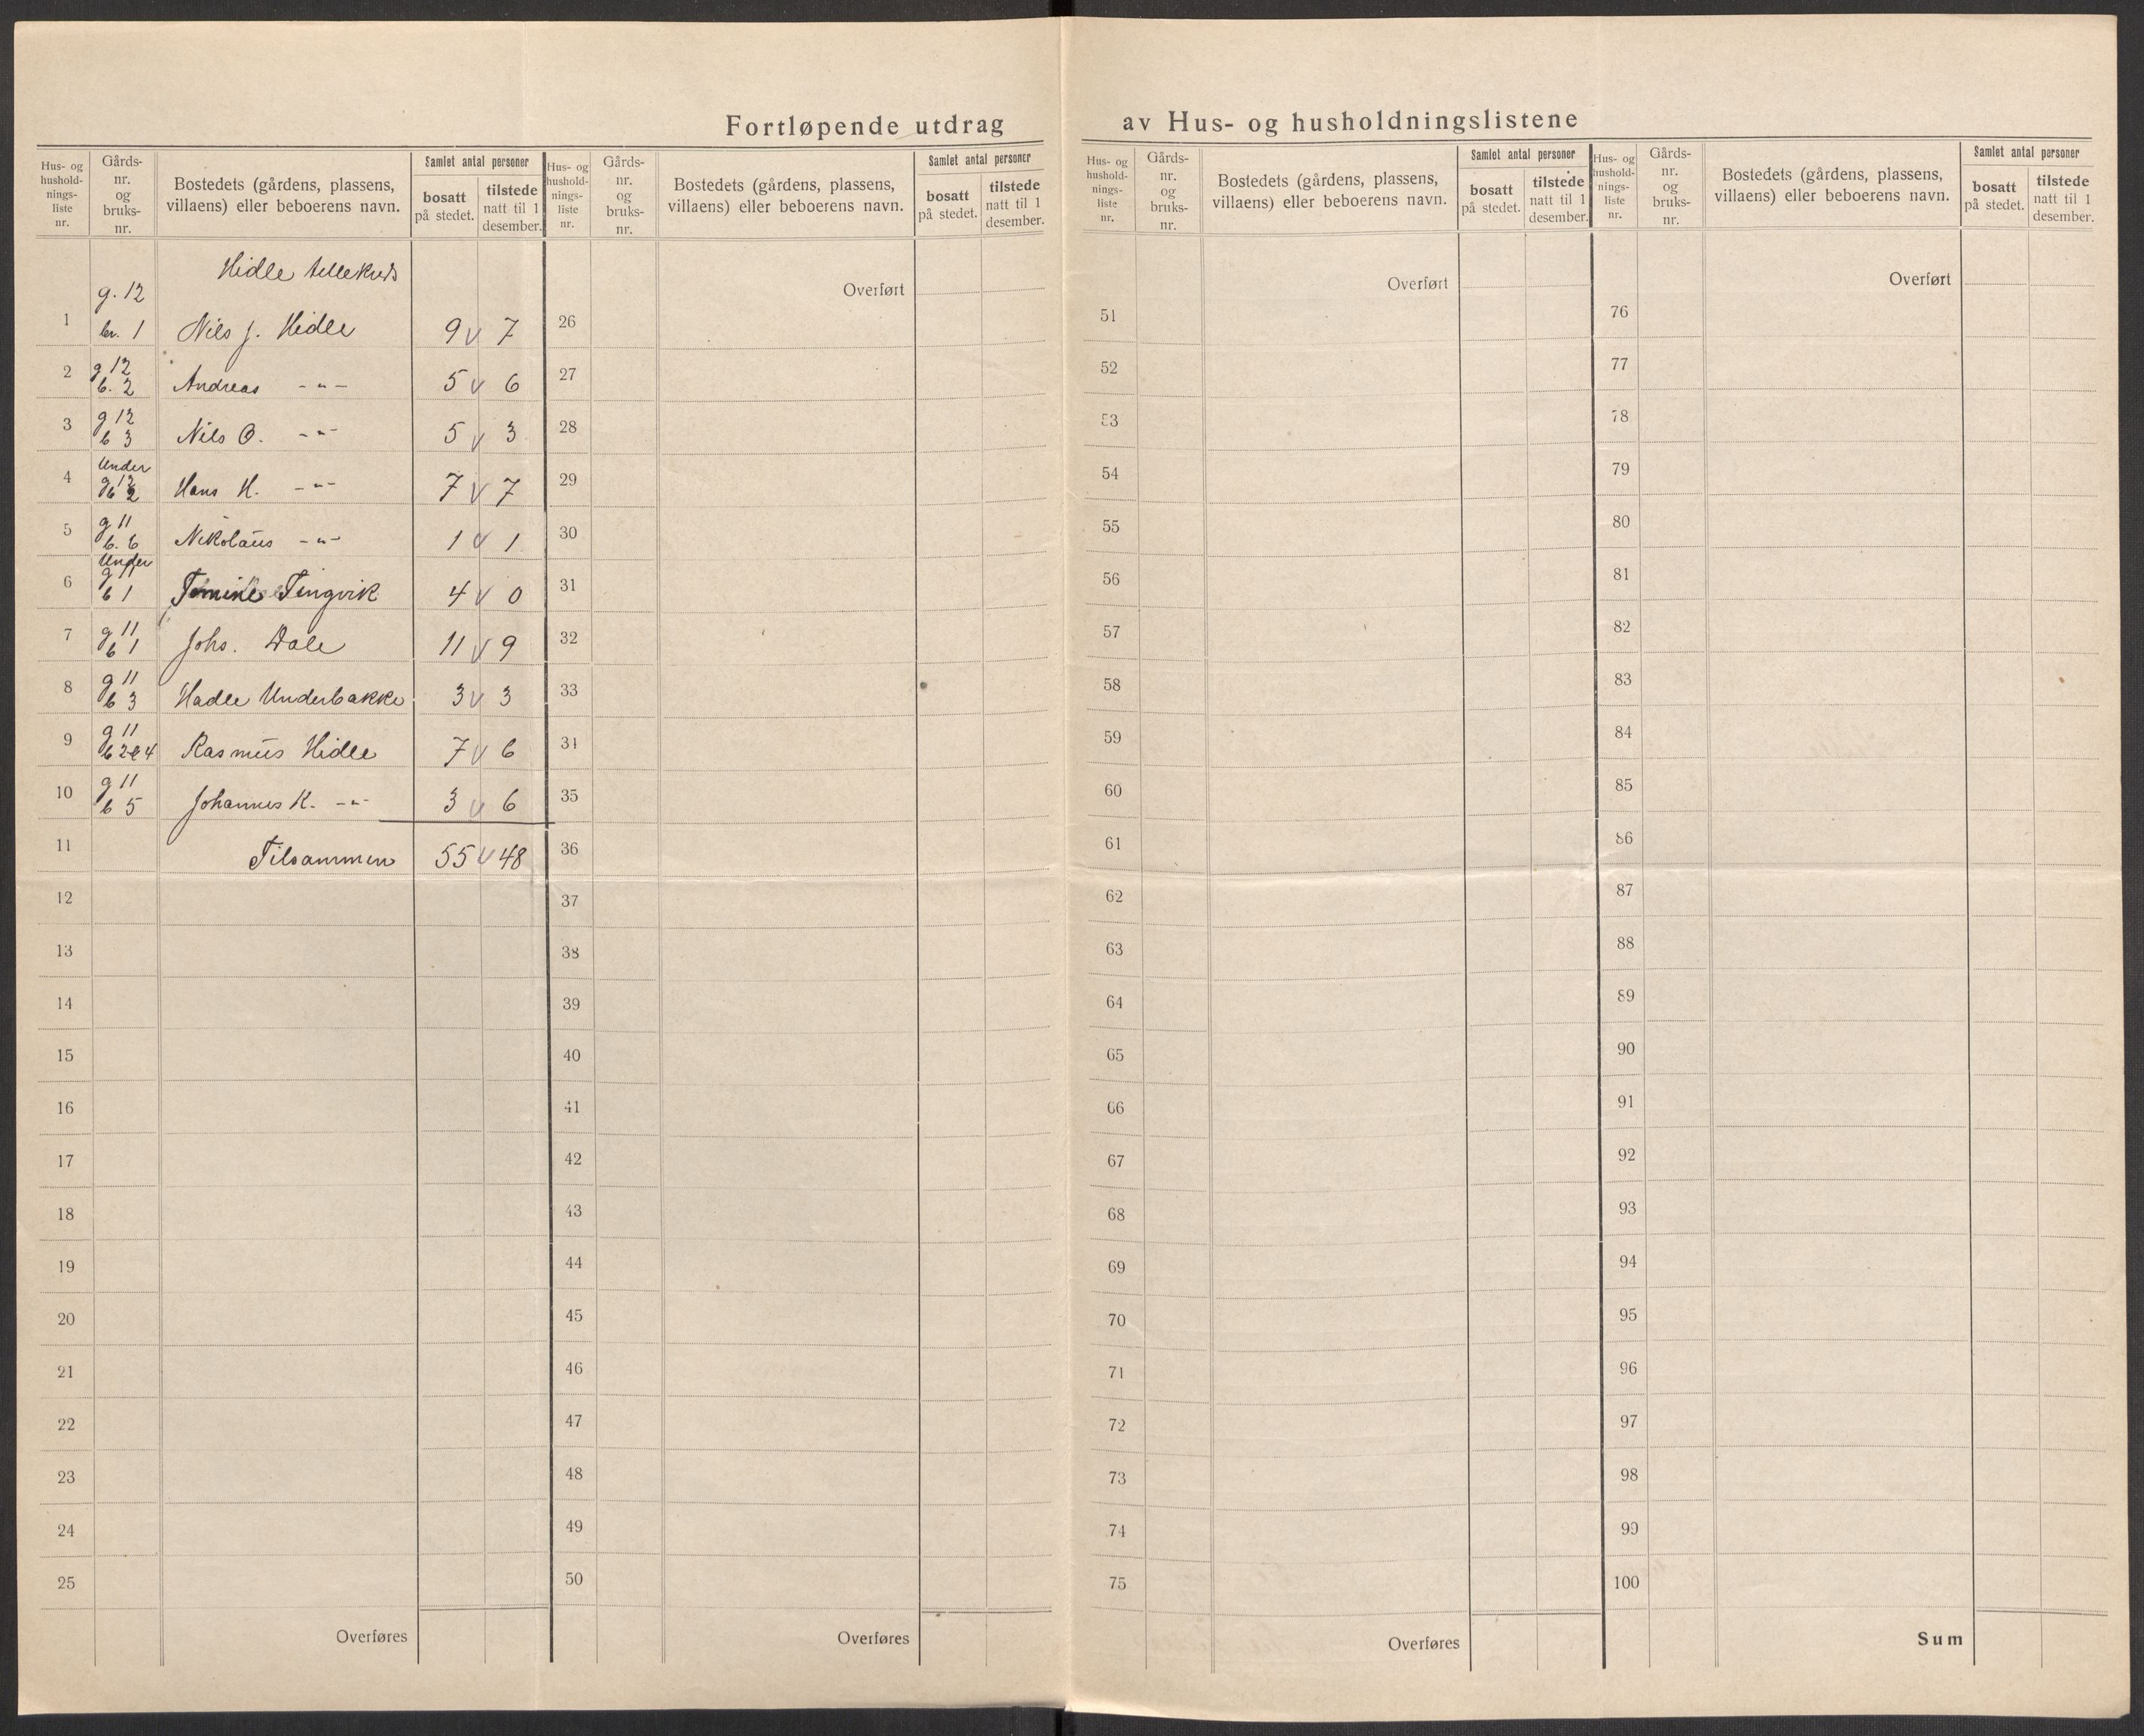 Fortløpende utdrag av Hus- og husholdningslistene
Hus- og hushold-nings-liste nr. Gårds-nr. og bruks-nr. Bostedets (gårdens, plassens, villaens) eller beboerens navn. Samlet antal personer bosatt på stedet. tilstede natt til 1 desember.
Hidle tellekreds
1 g. 12 br. 1 Nils J. Hidle 9 v 7
2 g 12 b. 2 Andreas -"- 5 v 6
3 g 12 b 3 Nils O. -"- 5 v 3
4 Under g 12 b 2 Hans H. -"- 7 v 7
5 g 11 b. 6 Nikolaus -"- 1 v 1
6 Under g 11 b 1 Tingvik 4 v 0
7 g 11 b 1 Johs. Dale 11 v 9
8 g 11 b 3 Hadle Underbakke 3 v 3
9 g 11 b 2 & 4 Rasmus Hidle 7 v 6
10 g 11 b 5 Johannes K. -"- 3 v 6
11 Tilsammen 55 v 48
12
13
14
15
16
17
18
19
20
21
22
23
24
25
Overføres
Hus- og hushold-nings-liste nr. Gårds-nr. og bruks-nr. Bostedets (gårdens, plassens, villaens) eller beboerens navn. Samlet antal personer bosatt på stedet. tilstede natt til 1 desember.
Overført
26
27
28
29
30
31
32
33
34
35
36
37
38
39
40
41
42
43
44
45
46
47
48
49
50
Overføres
Hus- og hushold-nings-liste nr. Gårds-nr. og bruks-nr. Bostedets (gårdens, plassens, villaens) eller beboerens navn. Samlet antal personer bosatt på stedet. tilstede natt til 1 desember.
Overført
51
52
53
54
55
56
57
58
59
60
61
62
63
64
65
66
67
68
69
70
71
72
73
74
75
Overføres
Hus- og hushold-nings-liste nr. Gårds-nr. og bruks-nr. Bostedets (gårdens, plassens, villaens) eller beboerens navn. Samlet antal personer bosatt på stedet. tilstede natt til 1 desember.
Overført
76
77
78
79
80
81
82
83
84
85
86
87
88
89
90
91
92
93
94
95
96
97
98
99
100
Sum